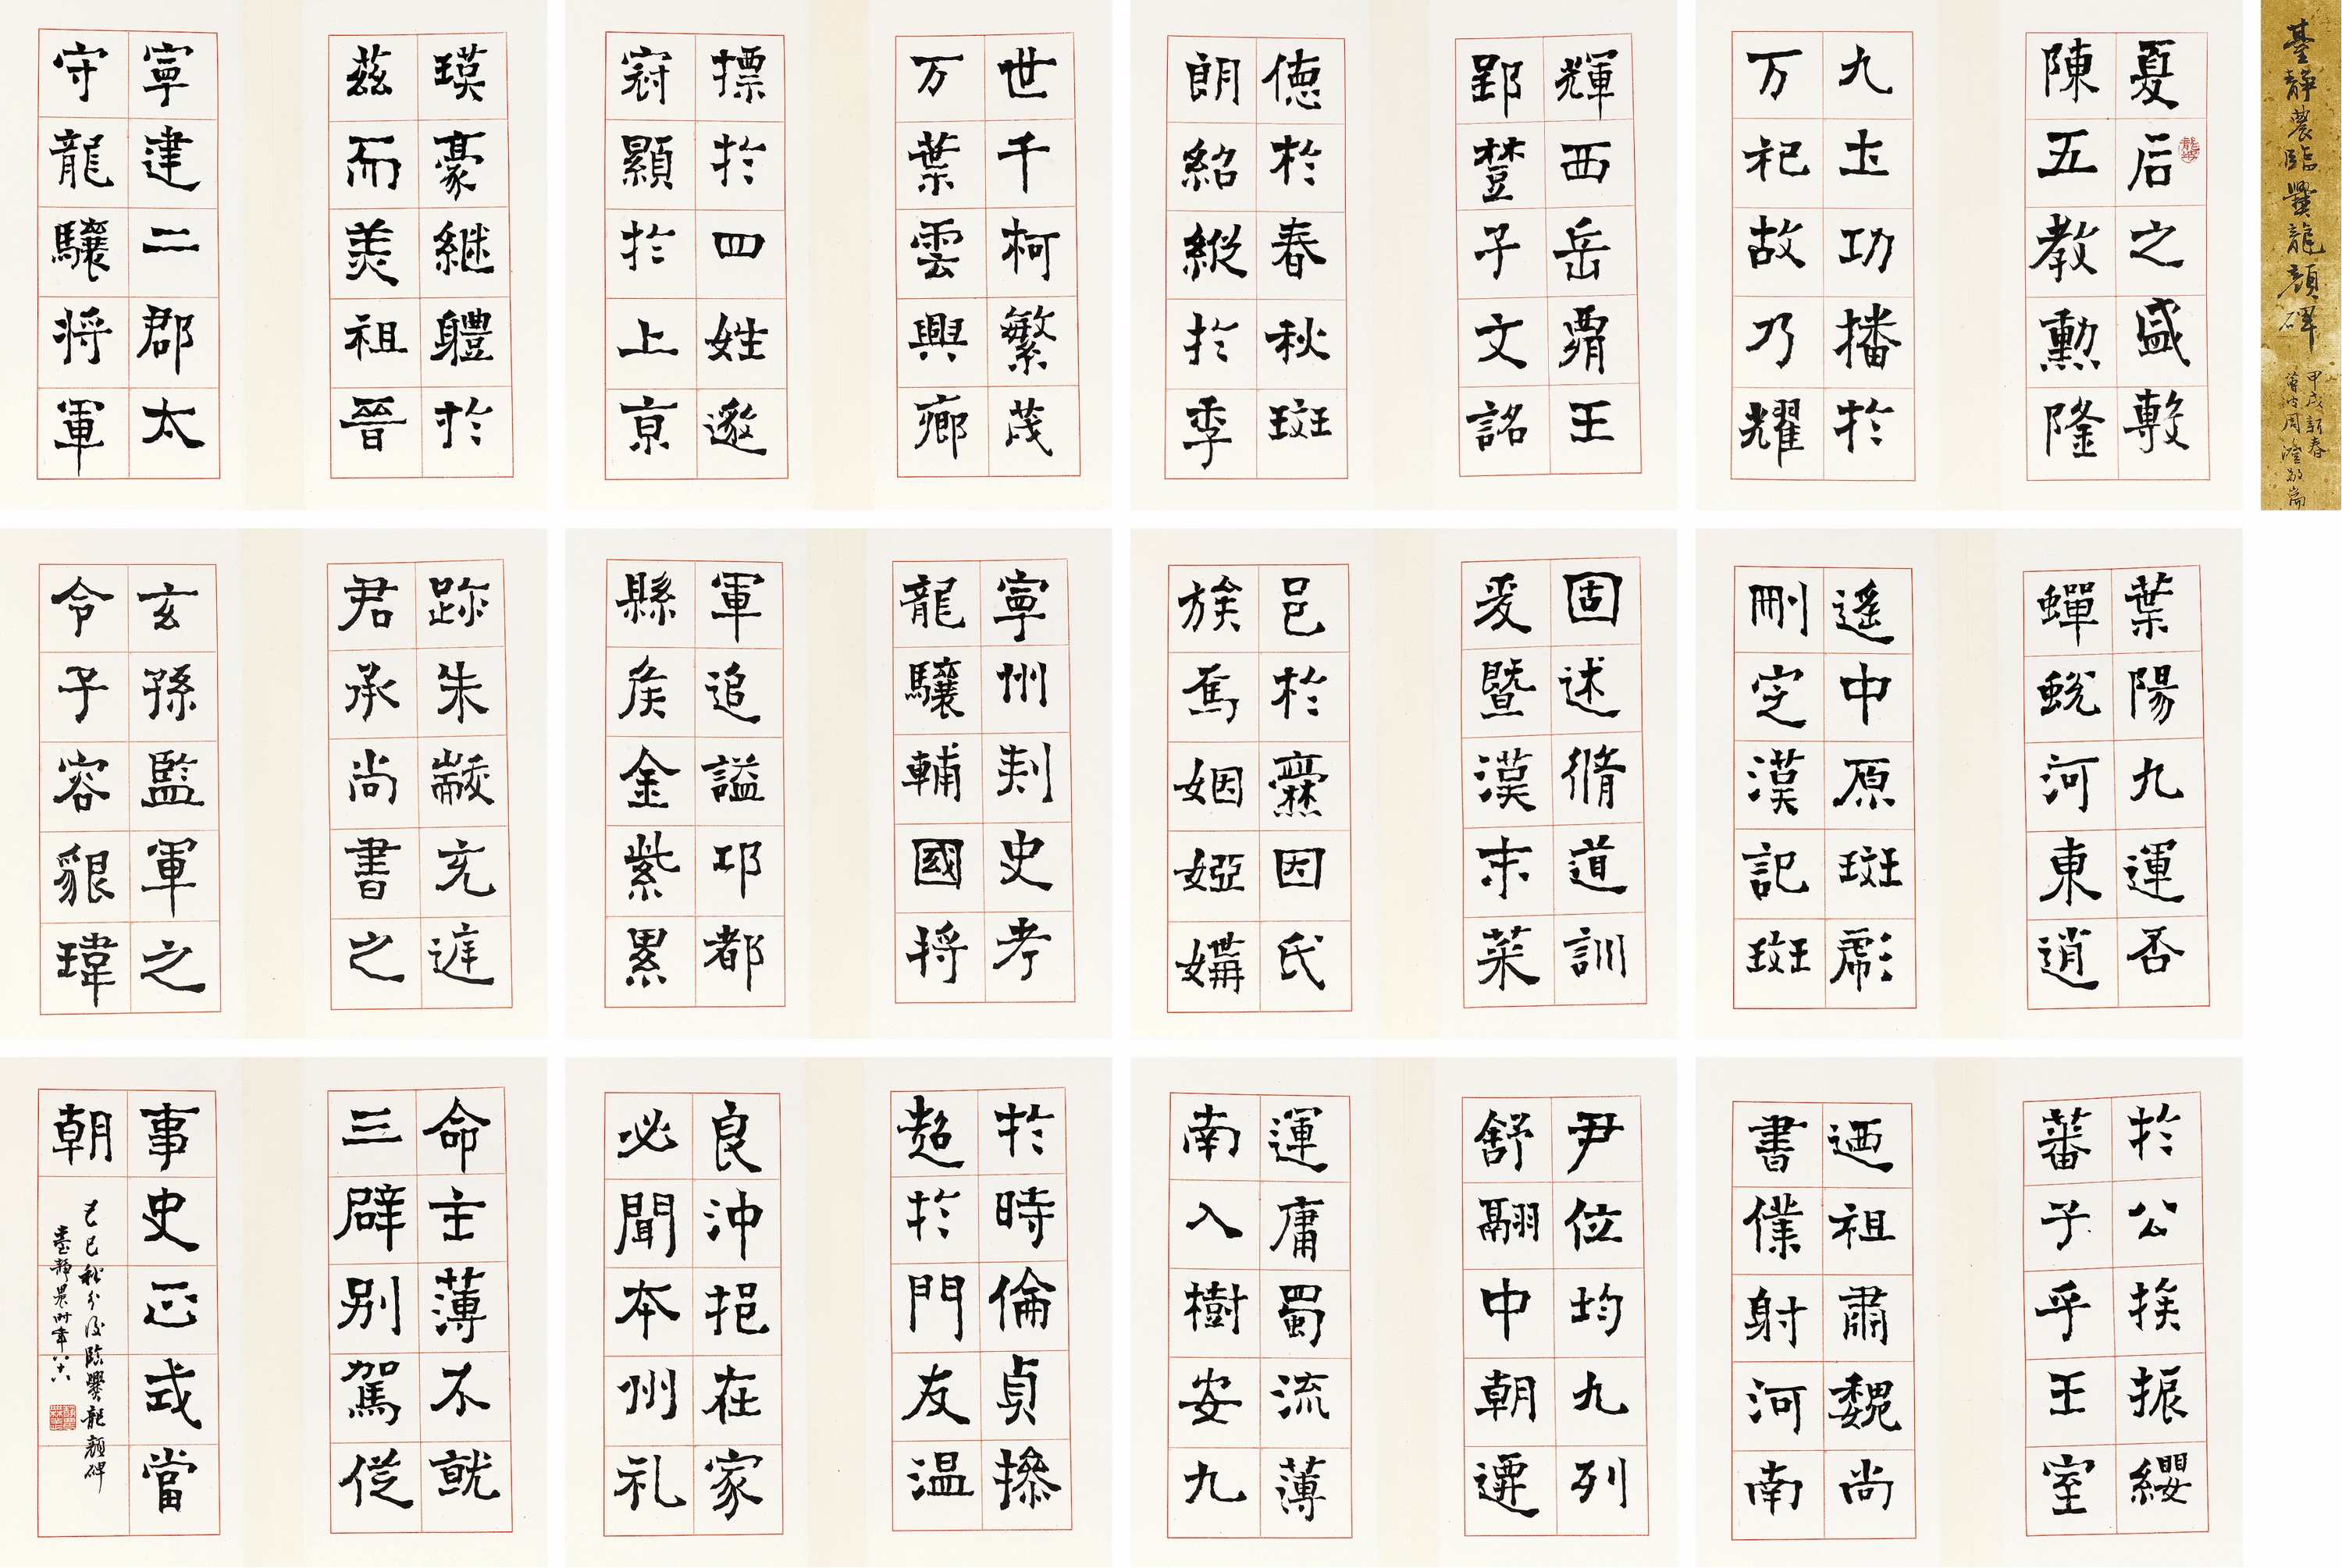 臺靜農臨爨龍顏碑
甲戌新春
蓴波周澄敬耑
夏后之盛敷
陳五教勲隆
九土功播於
万祀故乃耀
輝西岳霸王
郢楚子文銘
德於春秋斑
朗紹縱於季
世千柯繁茂
万葉雲興鄉
摽於四姓邈
冠顯於上京
瑛豪継軆於
茲而美祖晉
寧建二郡太
守龍驤將軍
葉陽九運否
蟬蛻河東逍
遙中原斑彪
刪定漢記斑
固述脩道訓
爰暨漢末菜
邑於爨因氏
族焉姻婭媾
寧州刾史考
龍驤輔國將
軍追謚邛都
縣侯金紫累
跡朱黻充庭
君承尚書之
玄孫監軍之
令子容貌瑋
於公族振纓
蕃子乎王室
迺祖肅魏尚
書僕射河南
尹位均九列
舒翮中朝遷
運庸蜀流薄
南入樹安九
於時倫貞操
超於門友温
良沖挹在家
必聞本州礼
命主薄不就
三辟別駕從
事史正式當
朝
己巳秋分後臨爨龍顏碑
臺靜農時年八十八